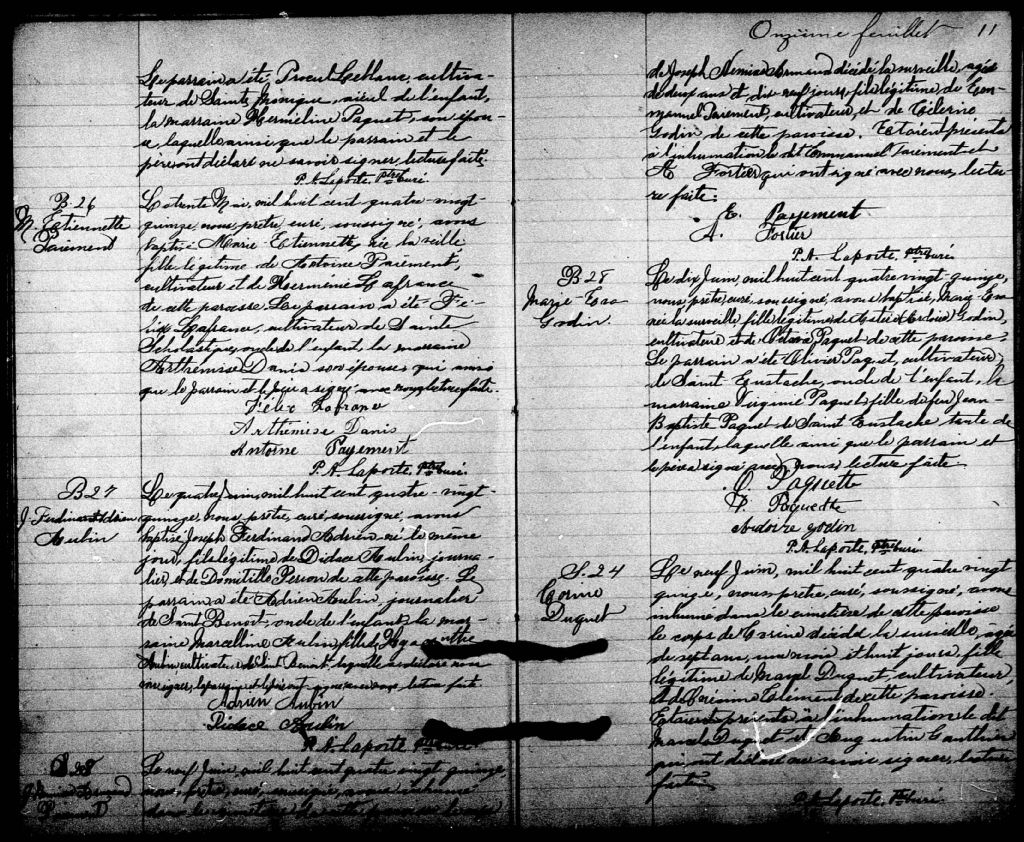 Onzième feuillet 11
Le parrain a été Procul Leblanc, cultiva-
teur de Sainte Monique, aïeul de l'enfant,
la marraine Herméline Paquet, son épou-
se, laquelle ainsi que le parrain et le
père ont déclaré ne savoir signer, lecture faite.
P. A. Laporte, Ptre Curé
B. 26
M. Etiennette
Paiement
Le trente Mai, mil huit cent quatre-vingt
quinze, nous prêtre, curé, soussigné, avons
baptisé Marie Etiennette, née la veille
fille légitime de Antoine Paiement,
cultivateur et de Herménie Lafrance
de cette paroisse. Le parrain a été Fé-
lix Lafrance, cultivateur de Sainte
Scholastique, oncle de l'enfant, la marraine
Arthémise Danis son épouse qui ainsi
que le parrain et le père a signé avec nous lecture faite.
Félix Lafrance
Arthémise Danis
Antoine Payement
P. A. Laporte, Ptre Curé.
B 27
J. Ferdinand Adrien
Aubin
Le quatre Juin, mil huit cent quatre-vingt
quinze, nous prêtre, curé, soussigné, avons
baptisé Joseph Ferdinand Adrien, né le même
jour, fils légitime de Didace Aubin, journa-
lier, et de Domitille Perron de cette paroisse. Le
parrain a été Adrien Aubin, journalier
de Saint Benoit, oncle de l'enfant, la mar-
raine Marcelline Aubin, fille de
Aubin cultivateur de Saint Benoit, laquelle a déclaré non
signer, le parrain et le père ont signé avec nous lecture faite.
Adrien Aubin
Didace Aubin
P. A. Laporte Ptre Curé.
S 23
Le neuf Juin, mil huit cent quatre vingt quinze
nous, prêtre, curé, soussigné, avons inhumé
dans le cimetière de cette paroisse le corps
de Joseph Némise Armand décédé la surveille, agé
de deux ans et dix neuf jours, fils légitime de Em-
manuel Paiement, cultivateur, et de Célerine
Godin de cette paroisse. Etaient présents
à l'inhumation le dit Emmanuel Paiement et
A. Fortier qui ont signé avec nous, lectu-
re faite.
E. Payement
A. Fortier
P. A. Laporte, Ptre Curé.
B 28
Marie-
Godin.
Le dix Juin, mil huit cent quatre vingt quinze,
nous, prêtre, curé, soussigné, avons baptisé, Marie
née la surveille, fille légitime de Godin,
cultivateur, et de Octavie Paquet de cette paroisse.
Le parrain a été Olivier Paquet, cultivateur,
de Saint Eustache, oncle de l'enfant, la
marraine Virginie Paquet, fille de feu Jean-
Baptiste Paquet de Saint Eustache tante de
l'enfant, laquelle ainsi que le parrain et
le père a signé avec nous lecture faite
O. Paquette
V. Paquette
godin
P. A. Laporte, Ptre Curé
S. 24
Corine
Duquet
Le neuf Juin, mil huit cent quatre vingt
quinze, nous prêtre, curé, soussigné, avons
inhumé dans le cimetière de cette paroisse
le corps de Corine décédée la surveille, agée
de sept ans, un mois et huit jours fille
légitime de Marcel Duquet, cultivateur,
de cette paroisse.
Etaient présents à l'inhumation le dit
Marcel Duquet et Augustin Gauthier
qui ont déclaré ne savoir signer, lecture
faite
P. A. Laporte, Ptre Curé.